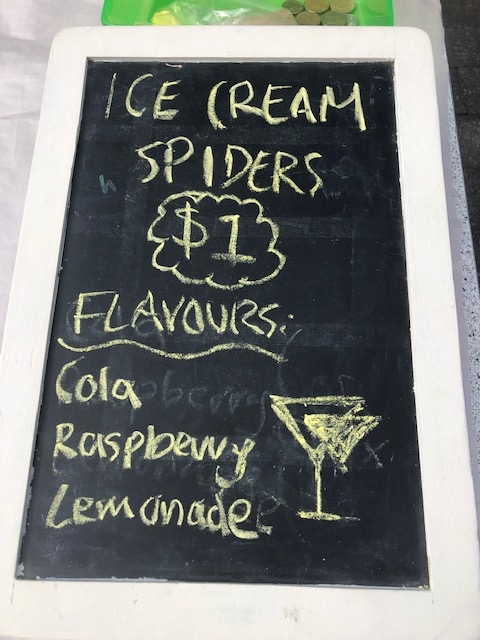 ICE CREAM
SPIDERS
$1
FLAVOURS:
Cola
Raspberry
Lemonade